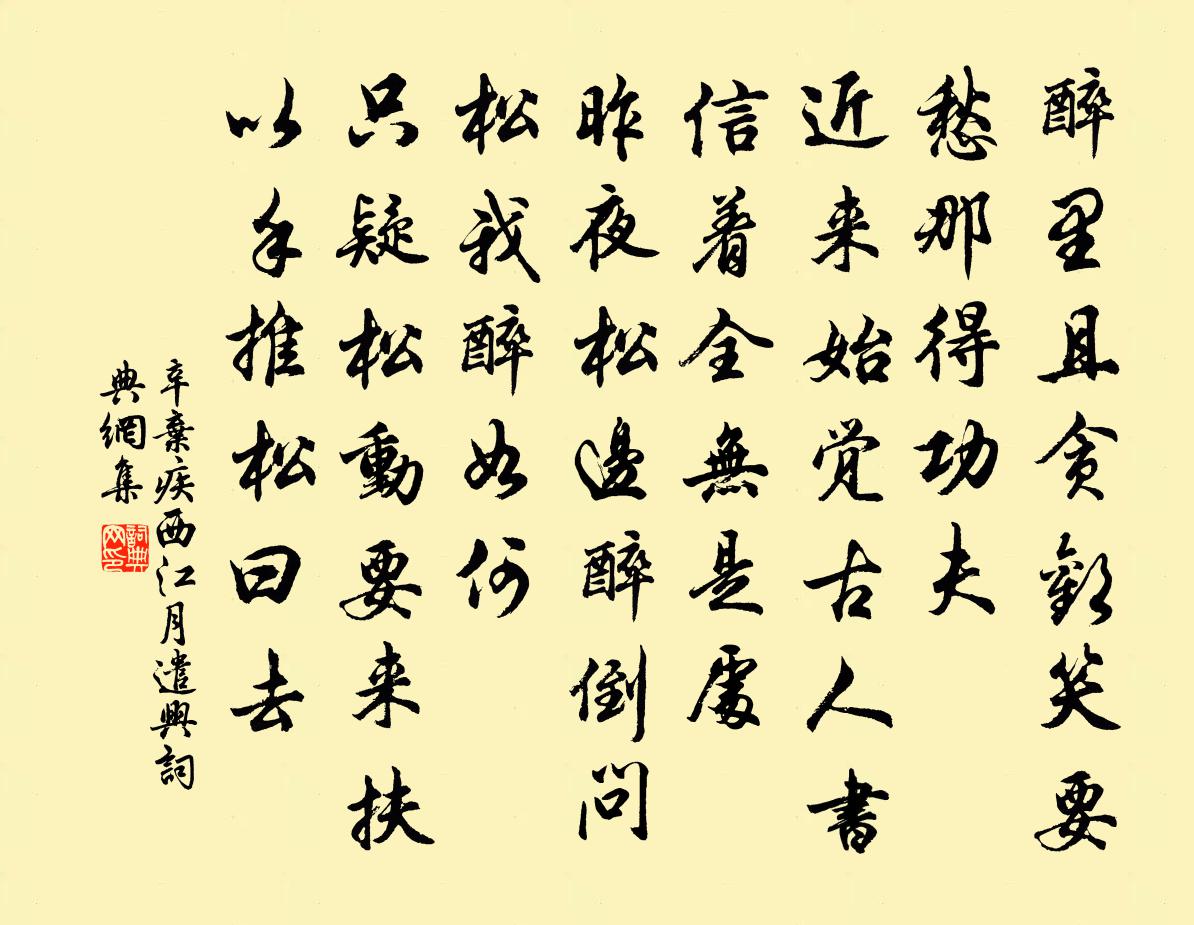 醉里且贪歡笑要
愁那得功夫
近来始觉古人書
信着全無是處
昨夜松邊醉倒問
松我醉如何
只疑松動要来扶
以手推松曰去
辛棄疾西江月遣興詞
典網集
詞典网印